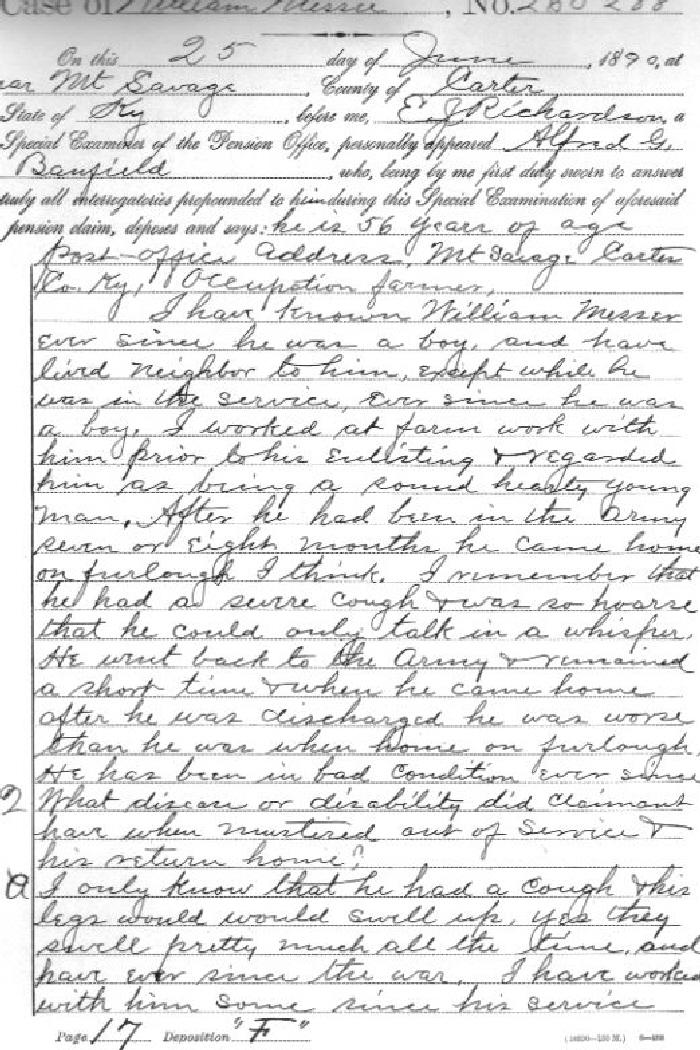 Case of William Messer, No. 280 288
On this 25 day of June, 1890, at
ear Mt Savage, County of Carter
State of Ky, before me, E J Richardson, a
Special Examiner of the Pension Office, personally appeared Alfred G.
Banfield, who, being by me first duly sworn to answer
truly all interrogatories propounded to him during this Special Examination of aforesaid
pension claim, deposes and says: he is 56 years of age
Post-office address, Mt Savage Carter
Co. Ky, Occupation farmer,
I have known William Messer
ever since he was a boy, and have
livd neighbor to him, except while he
was in the service, ever since he was
a boy. I worked at farm work with
him prior to his enlisting & regarded
him as being a sound hearty young
man. After he had been in the army
seven or eight months he came home
on furlough I think. I remember that
he had a severe cough & was so hoarse
that he could only talk in a whisper.
He went back to the Army & remained
a short time & when he came home
after he was discharged he was worse
than he was when home on furlough,
He has been in bad condition ever since
2 What disease or disability did claimant
have when mustired out of service &
his return home?
a I only know that he had a cough & his
legs would would swell up, yes they
swell pretty much all the time, and
have ever since the war. I have worked
with him some since his service
Page 17 Deposition "F"